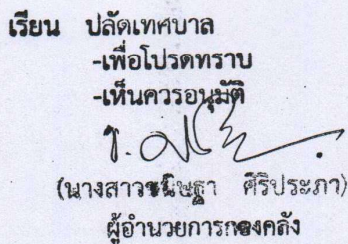 เรียน ปลัดเทศบาล
-เพื่อโปรดทราบ
-เห็นควรอนุมัติ
(นางสาวขนิษฐา ศิริประภา)
ผู้อำนวยการกองคลัง